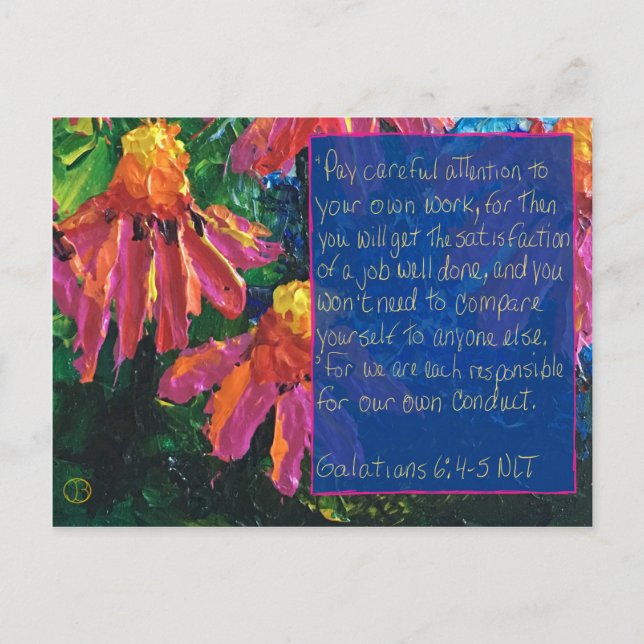 ⁴Pay careful attention to
your own work, for then
you will get the satisfaction
of a job well done, and you
won't need to compare
yourself to anyone else.
⁵For we are each responsible
for our own conduct.
Galatians 6:4-5 NLT